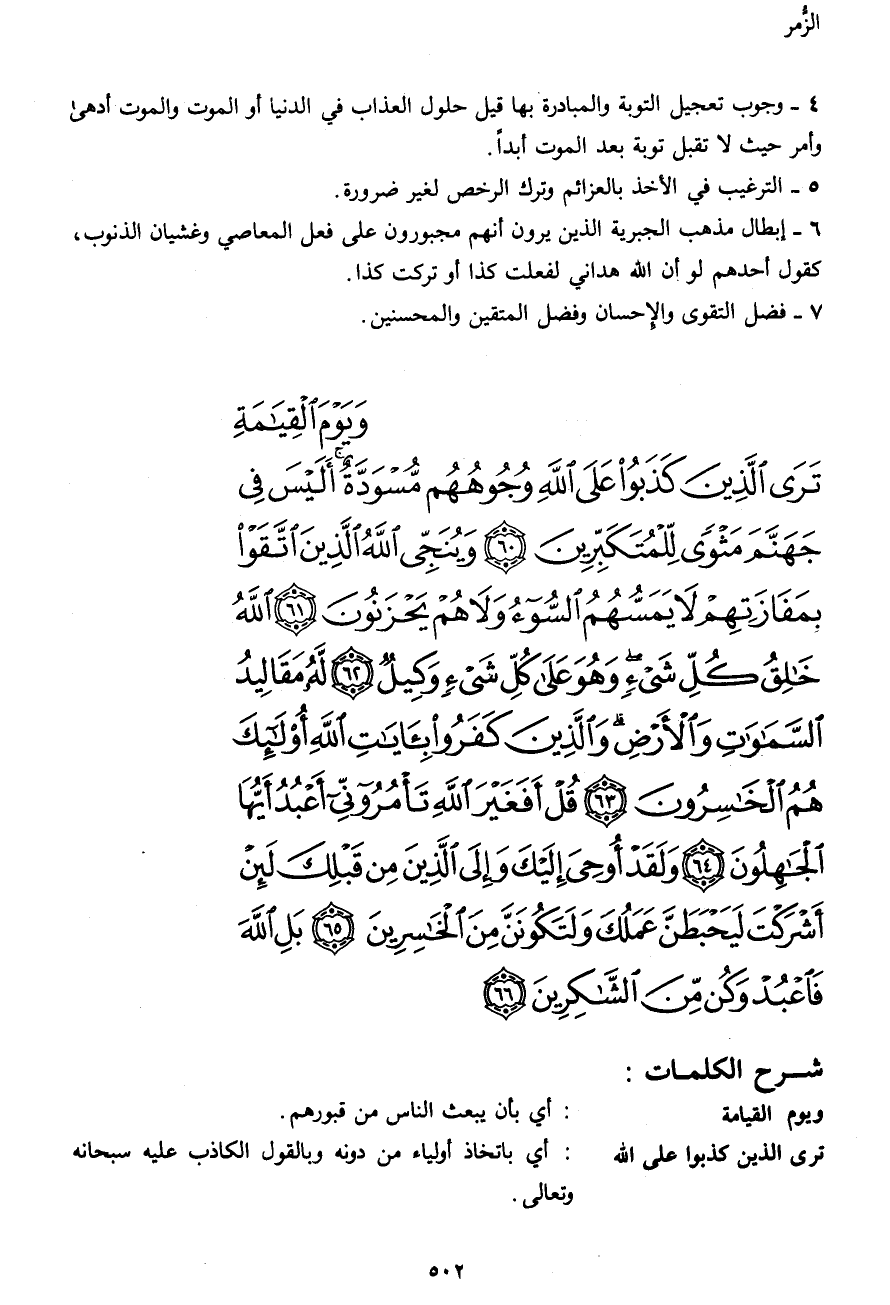 الزُّمر
٤ ـ وجوب تعجيل التوبة والمبادرة بها قيل حلول العذاب في الدنيا أو الموت والموت أدهىٰ
وأمر حيث لا تقبل توبة بعد الموت أبداً.
٥ ـ الترغيب في الأخذ بالعزائم وترك الرخص لغير ضرورة.
٦ ـ إبطال مذهب الجبرية الذين يرون أنهم مجبورون على فعل المعاصي وغشيان الذنوب،
كقول أحدهم لو أن الله هداني لفعلت كذا أو تركت كذا.
٧ ـ فضل التقوى والإحسان وفضل المتقين والمحسنين.
وَيَوْمَ ٱلْقِيَٰمَةِ
تَرَى ٱلَّذِينَ كَذَبُوا۟ عَلَى ٱللَّهِ وُجُوهُهُم مُّسْوَدَّةٌ ۚ أَلَيْسَ فِى
جَهَنَّمَ مَثْوًى لِّلْمُتَكَبِّرِينَ ٦٠ وَيُنَجِّى ٱللَّهُ ٱلَّذِينَ ٱتَّقَوْا۟
بِمَفَازَتِهِمْ لَا يَمَسُّهُمُ ٱلسُّوٓءُ وَلَا هُمْ يَحْزَنُونَ ٦١ ٱللَّهُ
خَٰلِقُ كُلِّ شَىْءٍ ۖ وَهُوَ عَلَىٰ كُلِّ شَىْءٍ وَكِيلٌ ٦٢ لَّهُۥ مَقَالِيدُ
ٱلسَّمَٰوَٰتِ وَٱلْأَرْضِ ۗ وَٱلَّذِينَ كَفَرُوا۟ بِـَٔايَٰتِ ٱللَّهِ أُو۟لَٰٓئِكَ
هُمُ ٱلْخَٰسِرُونَ ٦٣ قُلْ أَفَغَيْرَ ٱللَّهِ تَأْمُرُوٓنِّىٓ أَعْبُدُ أَيُّهَا
ٱلْجَٰهِلُونَ ٦٤ وَلَقَدْ أُوحِىَ إِلَيْكَ وَإِلَى ٱلَّذِينَ مِن قَبْلِكَ لَئِنْ
أَشْرَكْتَ لَيَحْبَطَنَّ عَمَلُكَ وَلَتَكُونَنَّ مِنَ ٱلْخَٰسِرِينَ ٦٥ بَلِ ٱللَّهَ
فَٱعْبُدْ وَكُن مِّنَ ٱلشَّٰكِرِينَ ٦٦
شـرح الكلمـات :
ويوم القيامة : أي بأن يبعث الناس من قبورهم.
ترى الذين كذبوا على الله : أي باتخاذ أولياء من دونه وبالقول الكاذب عليه سبحانه
وتعالى.
٥٠٢